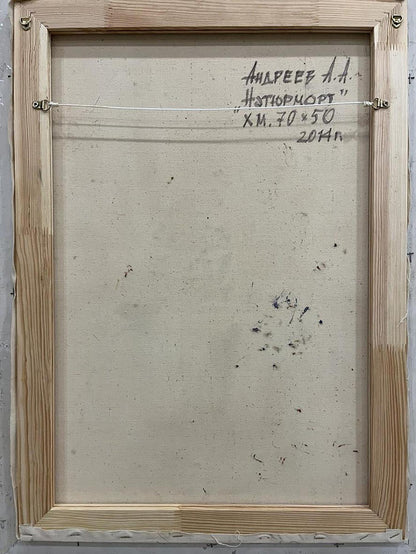 Андреев А.А.
"Натюрморт"
х.м. 70×50
2014 г.